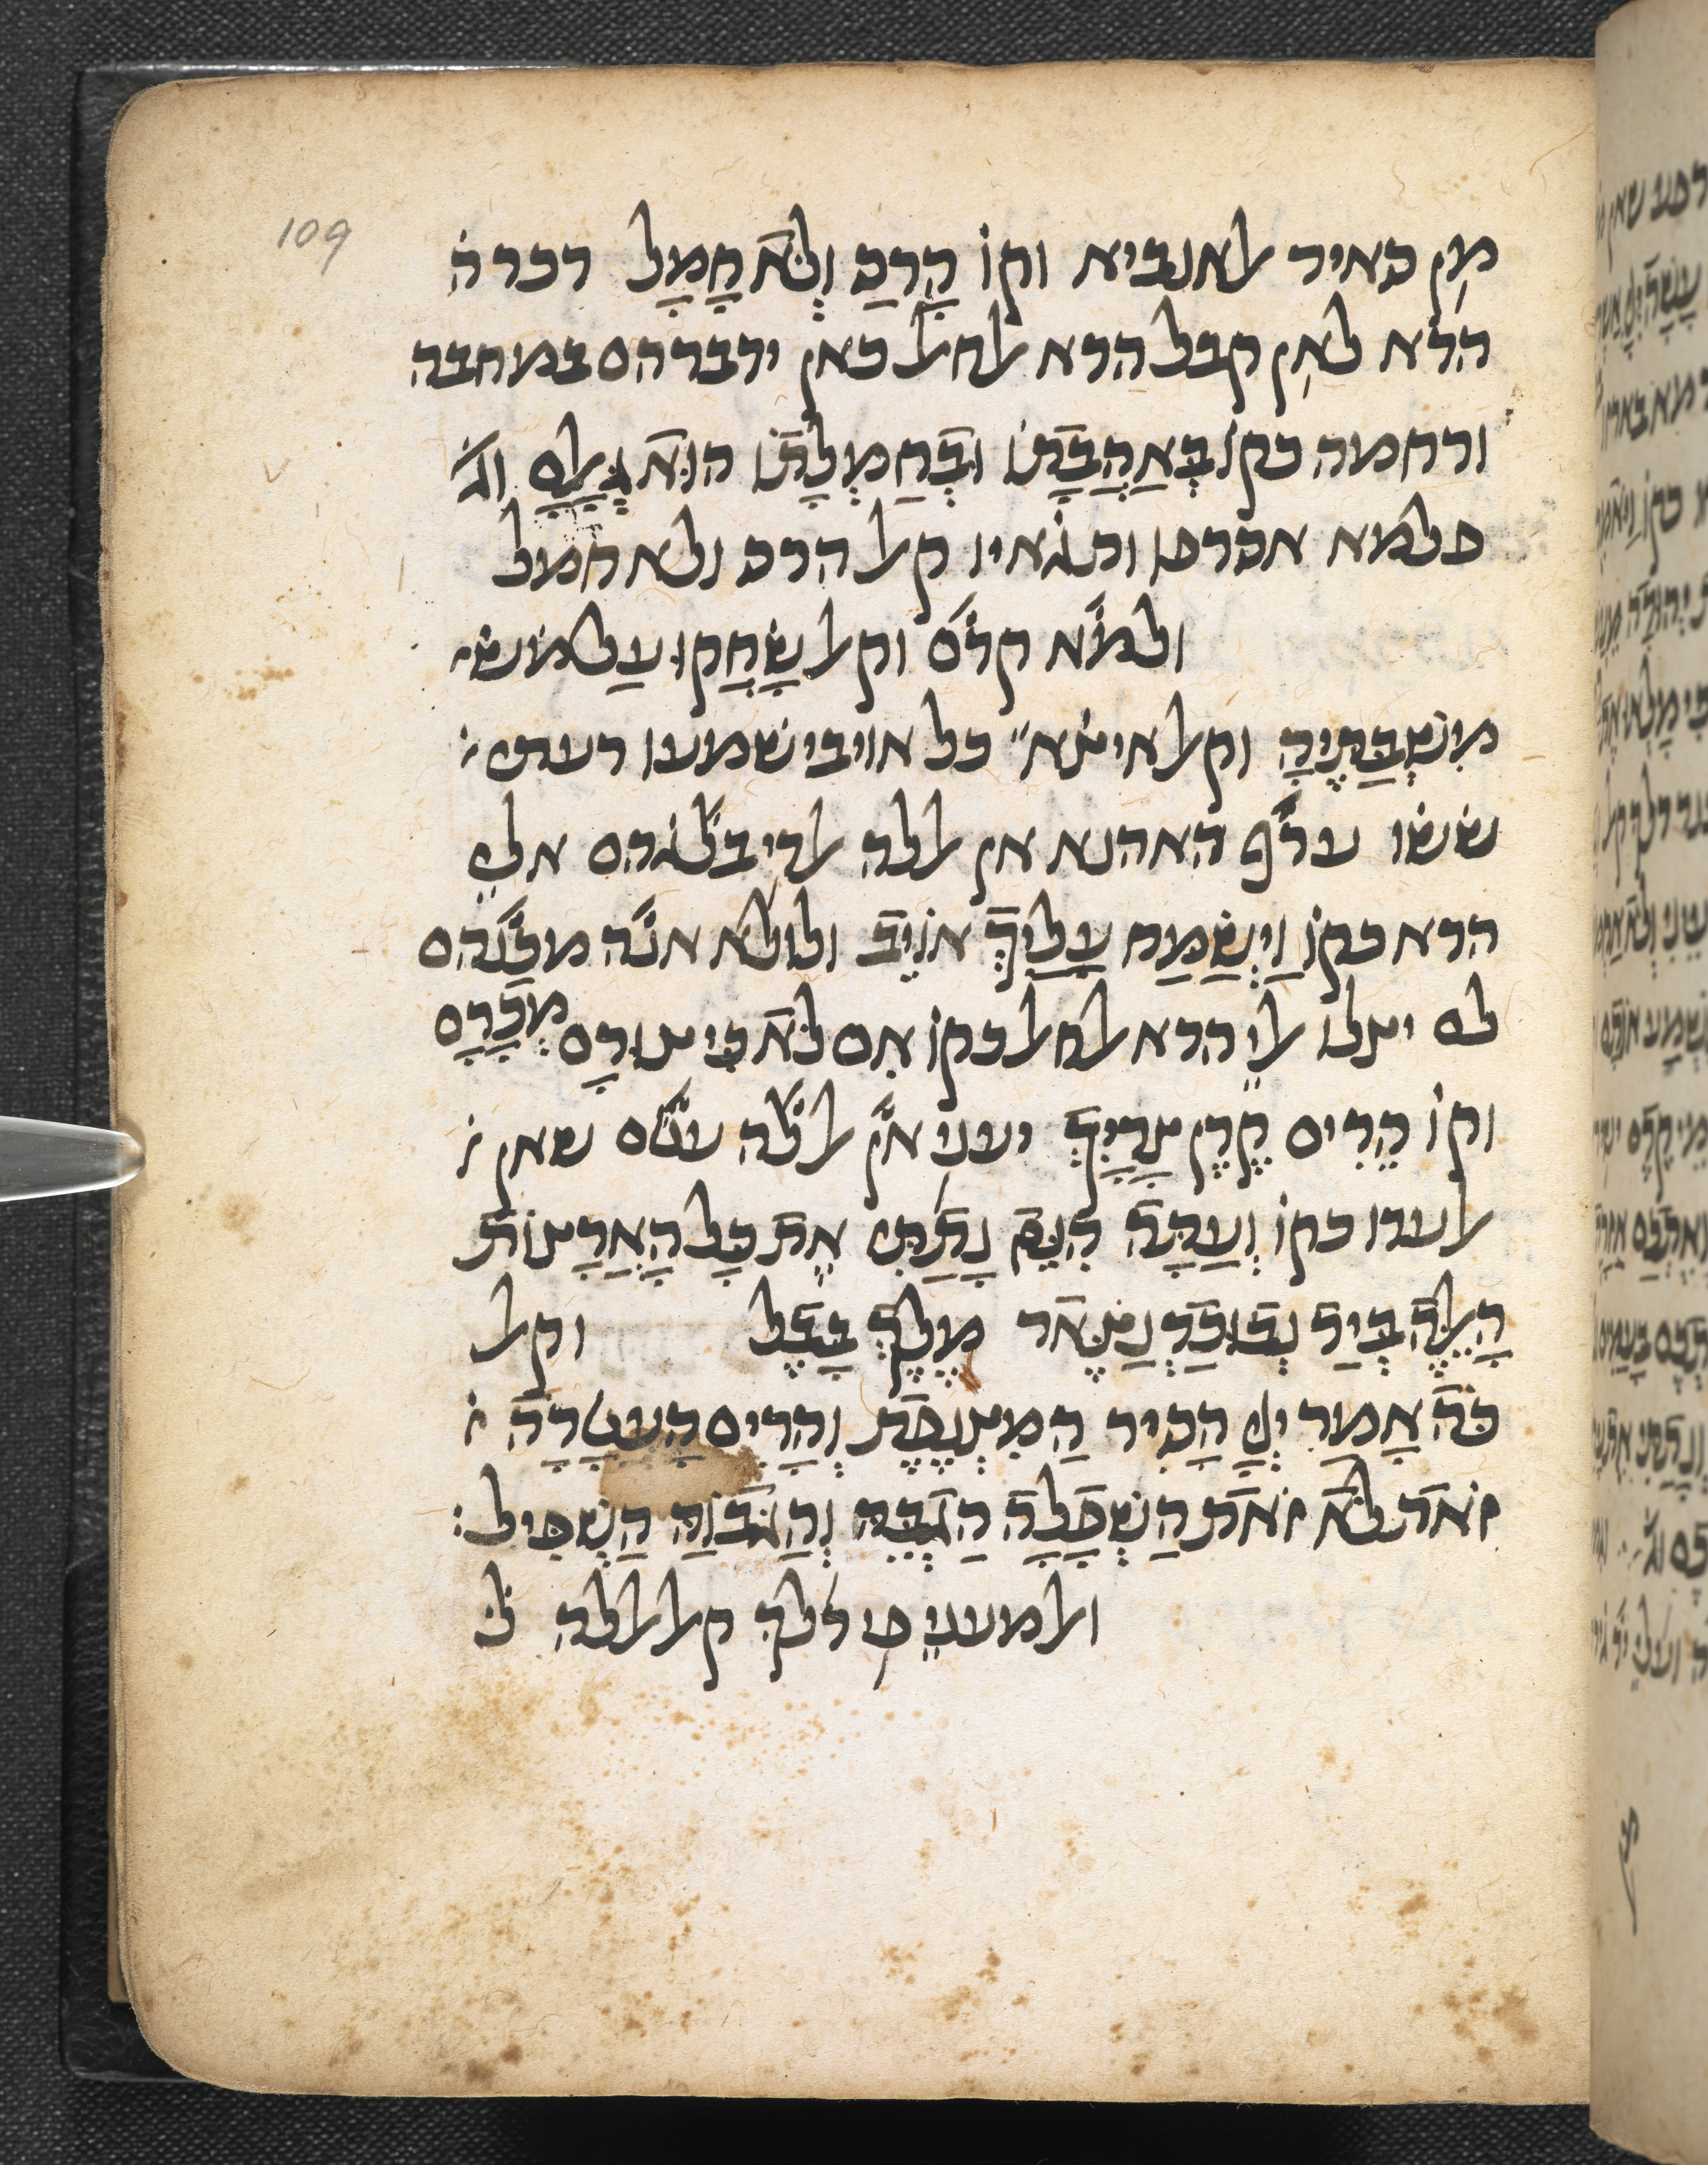 109
מן סאיר אלאנביא וקו הָרַס וְלֹא חָמָל דכרה
הדא לאן קבל הדא אלחאל כאן ידברהם במחבה
ורחמה כקו בְּאַהֲבָתוֹ וּבְחֶמְלָתוֹ הוּא גְאָלָם וג׳
פלמא אסרפו ותגאיו קאל הרס ולא חמל
ולמא קדם וקאל שָׂחֲקוּ עַל משׁ
מִשְׁבַּתֶּיהָ וקאל איצא כל אויבי שמעו רעתי
ששו ערף האהנא אן אללה אלדי בלגהם אלי
הדא כקו וַיְשַׂמַּח עָלַיִךְ אוֹיֵב ולולא אנה מכנהם
לם יצלו אלי הדא אלחאל כקו אִם לֹא כִּי צוּרָם מְכָרָם
וקו הֵרִים קֶרֶן צָרָיִךְ יעני אן אללה עטם שאן
אלעדו כקו וְעַתָּה הִנֵּה נָתַתִּי אֶת כָּל הָאֲרָצוֹת
הָאֵלֶּה בְּיַד נְבוּכַדְנֶצַּאר מֶלֶךְ בָּבֶל וקאל
כֹּה אָמַר יְיָ הָסִיר הַמִּצְנֶפֶת וְהָרִים הָעֲטָרָה
זֹאת לֹא זֹאת הַשְׁפָּלָה הַגְבֵּהַּ וְהַגָּבוֹהַּ הַשְׁפִּיל:
ואלמעני פי דלך קאל אללה לֹ